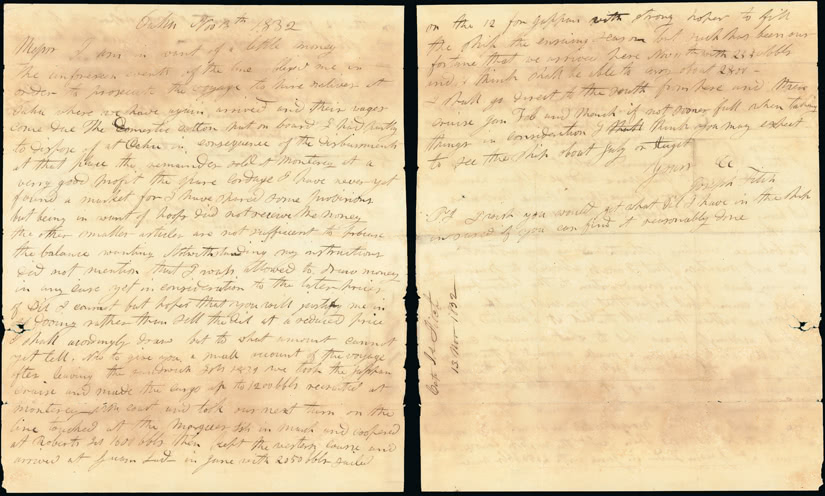 Oahu Nov 13th 1832
Messrs I am in want of a little money
the unforeseen events of the me in
order to prosecute the voyage to hire natives at
Oahu where we have again arrived and their wages
come due The Domestic cotton put on board I had partly
to dispose of at Oahu in consequence of the disbursments
at that place the remainder sold at Monterey at a
very good profit the spare cordage I have never yet
found a market for I have spared some provisions
but being in want of hoops did not receive the money
the other smaller articles are not sufficient to
the balance wanting Notwithstanding my instructions
did not mention that I was allowed to draw money
in any case yet in consideration to the later prices
of Oil I cannot but hope that you will justify me in
so Dooing rather than sell the Oil at a reduced price
I shall acordingly draw but to what amount cannot
yet tell. Now to give you a small account of the voyage
after leaving the Sandwich Ids we took the Jappan
cruise and made the cargo up to 1200 bbls recruited at
monterey coast and took our next turn on the
line touched at the Ids in march and coopered
at Roberts Id 1650 bbls then kept the western course and
arrived at Guam in June with 2050 bbls sailed
on the 12 for Jappan with strong hopes to fill
the ship the ensuing season but such has been our
fortune that we arrived here with bbls
and I think shall be able to
I shall go direct to the south from here and then
cruise Jan Feb and March if not sooner full when taking
things in consideration I think you may expect
to see the ship about July or August
Yours &c
Joseph
PS I wish you would get what Oil I have in the ship
insured if you can find it reasonably done
Cap
13 Nov. 1832